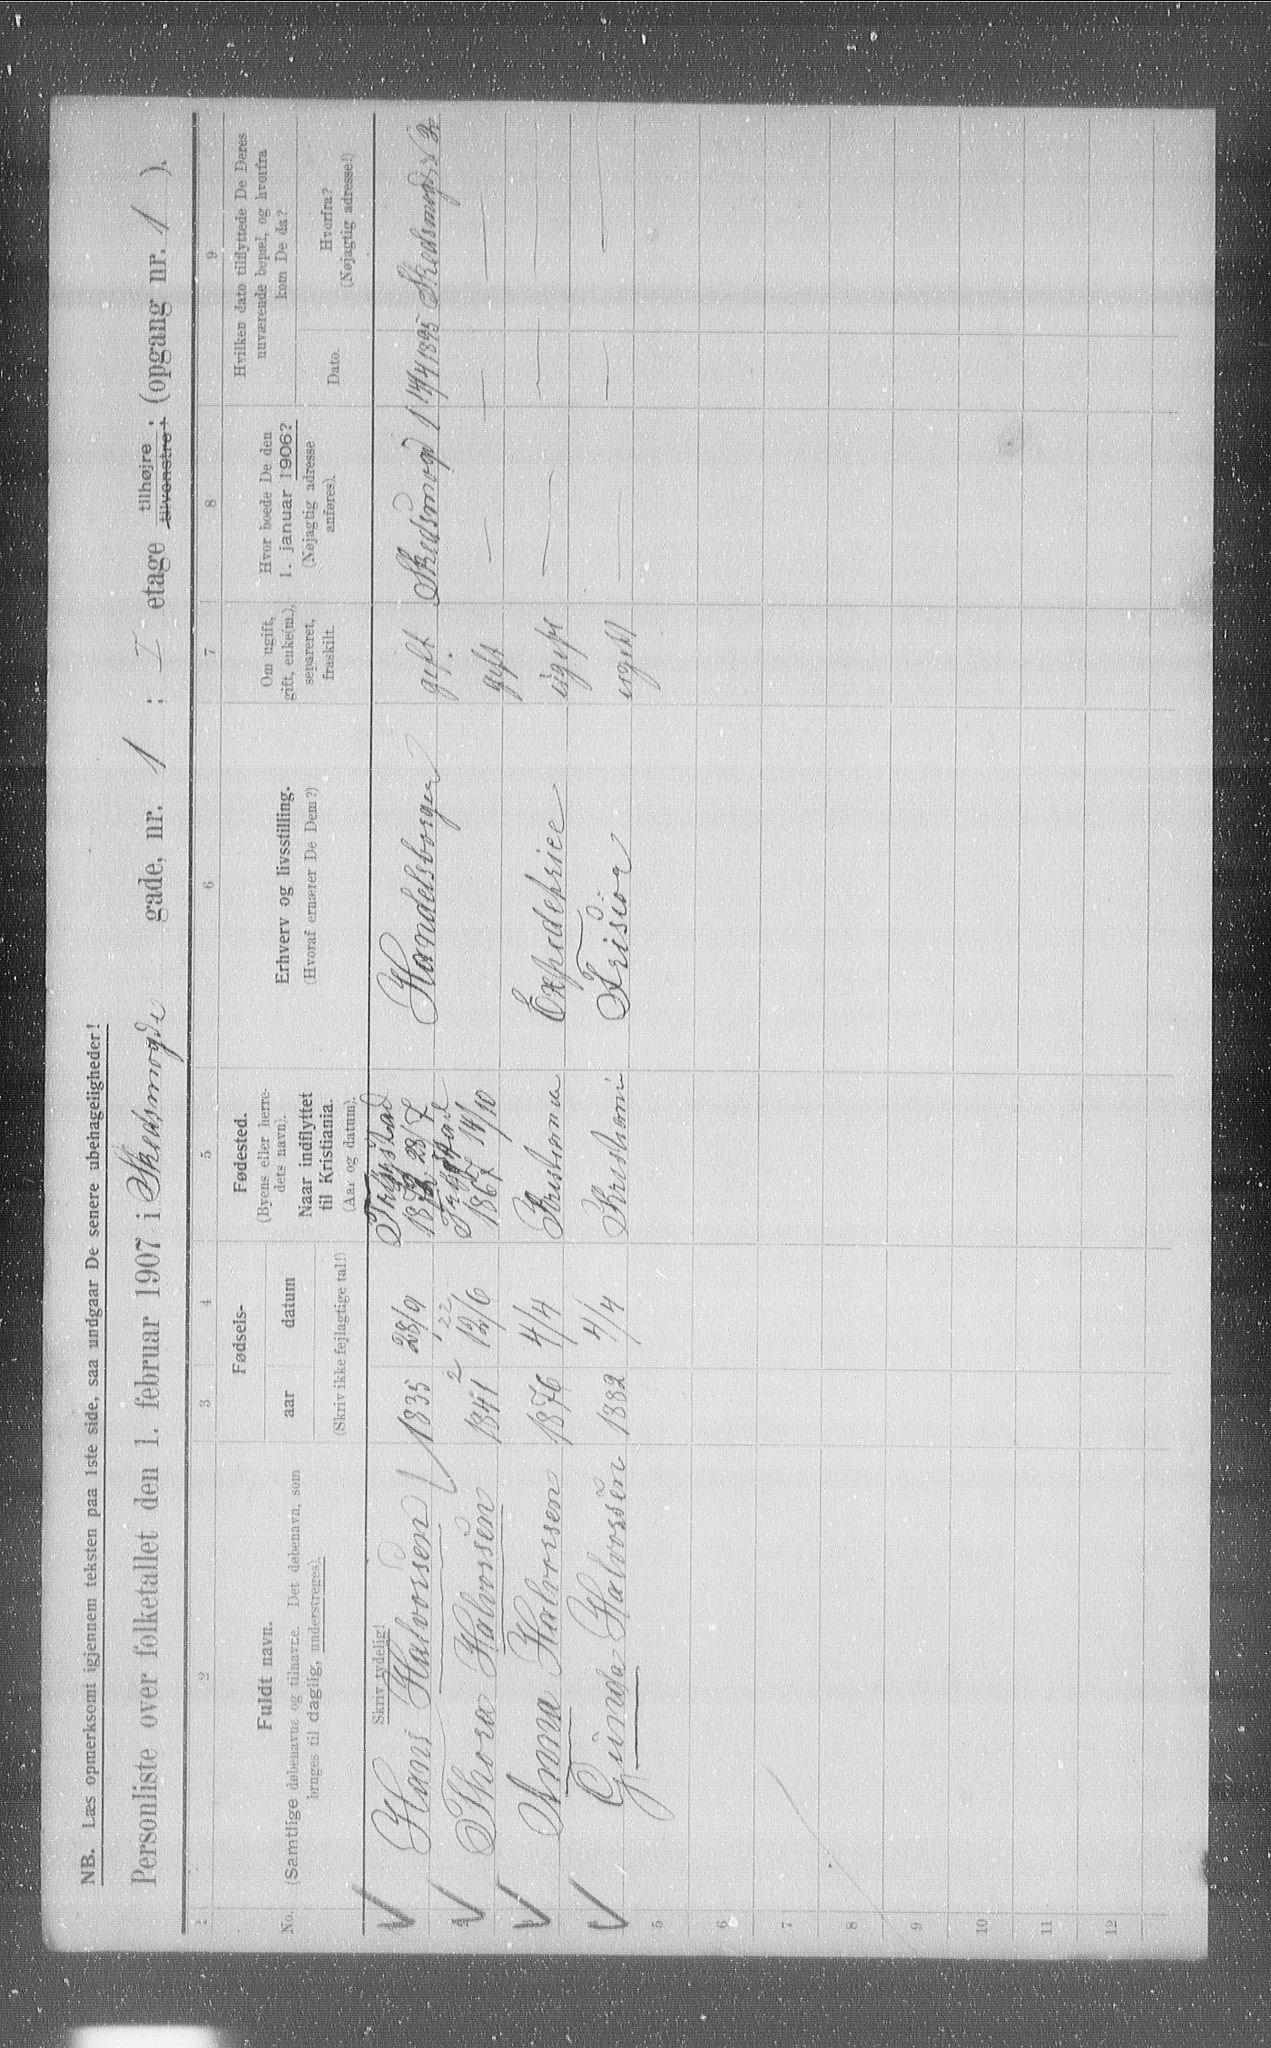 NB. Læs opmerksomt igjennem teksten paa 1ste side, saa undgaar De senere ubehageligheder!
Personliste over folketallet den 1. februar 1907 i Skedsmogde gade, nr. 1 ; I etage tilhøjre ; tilvenstre ; (opgang nr. 1 ).
1 2 3 4 5 6 7 8 9
No.
Fuldt navn.
(Samtlige døbenavne og tilnavne. Det døbenavn, som
bruges til daglig, understreges).
Skriv tydelig!
Fødsels-
aar datum
(Skriv ikke fejlagtige tal!)
Fødested.
(Byens eller herre-
dets navn).
Naar indflyttet
til Kristiania.
(Aar og datum).
Erhverv og livsstilling.
(Hvoraf ernærer De Dem?)
Om ugift,
gift, enke(m.),
separeret,
fraskilt.
Hvor boede De den
1. januar 1906?
(Nøjagtig adresse
anføres).
Hvilken dato tilflyttede De Deres
nuværende bopæl, og hvorfra
kom De da?
Dato.
Hvorfra?
(Nøjagtig adresse!)
Hans Halvorsen 1835 28/9 28/7 Handelsborger gift Skedsmogd 1 14/4 1895 Skedsmogd
Thora Halvorssen 1841 2 12/6 22 1867 14/10 gift — — —
Anna Halvorssen 1876 4/4 Kristiania Expideprice ugift — — —
Gunda Halvorssen 1882 4/4 Kristiani Frisiör ugift — — —
5
6
7
8
10
11
12